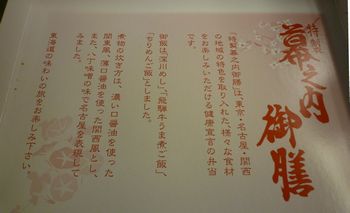 特製
幕之内
御膳
「特製幕之内御膳」は、東京・名古屋・関西
の地域の特色を取り入れた、様々な食材
をお楽しみいただける健康宣言の弁当
です。
御飯は、「深川めし」、「飛騨牛うま煮ご飯」、
「ちりめんご飯」にしました。
煮物の炊き方は、濃い口醤油を使った
関東風、薄口醤油を使った関西風とし、
また、八丁味噌の味で名古屋を表現して
みました。
東海道の味わいの旅をお楽しみ下さい。